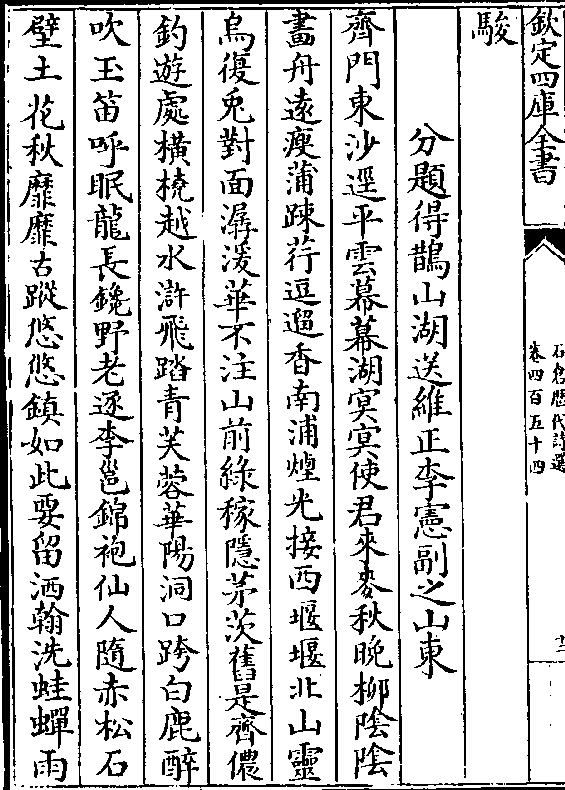 欽定四庫全書
石倉歷代詩選
卷四百五十四
駿
分題得鵲山湖送維正李憲副之山東
齊門東沙逕平雲幕幕湖寞寞使君來麥秋晚柳陰陰
畫舟遠瘦蒲踈荇逗遛香南浦煙光接西堰堰北山靈
烏復兎對面潺湲華不注山前綠稼隱茅茨舊是齊儂
釣遊處橫橈越水滸飛踏青芙蓉華陽洞口跨白鹿醉
吹玉笛呼眠龍長鑱野老逐李邕錦袍仙人隨赤松石
壁土花秋靡靡古蹤悠悠鎮如此要留洒翰洗蛙蟬雨